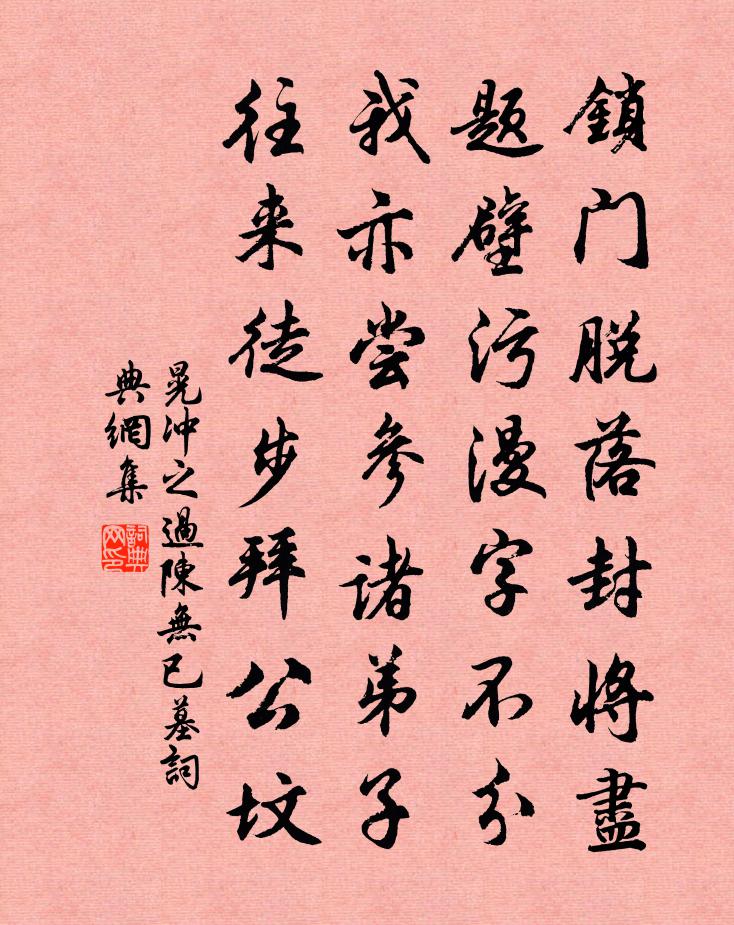 鎖门脱落封將盡
题壁污漫字不分
我亦尝參诸弟子
往来徒步拜公坟
晃冲之過陳無已墓詞
典網集
詞典网印